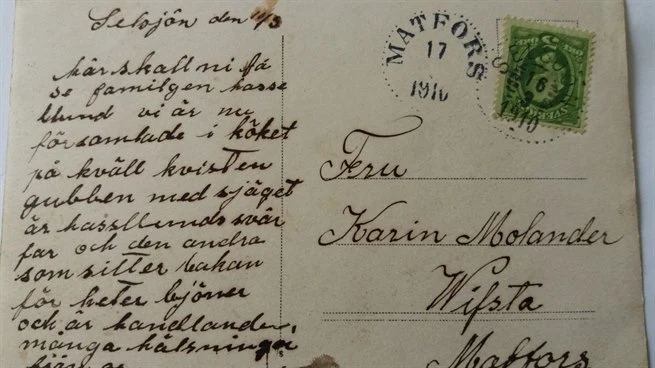 Selsjön den 14/3
här skall ni få
se familgen hasse
llund vi är nu
församlade i köket
på kväll kvisten
gubben med sjäget
är hasslunds svär
far och den andra
som sitter bakan
för heter bjöner
och är handlande,
många hälsningar
MATFORS
17
1910
16
1910
Fru
Karin Molander
Wifsta
Matfors